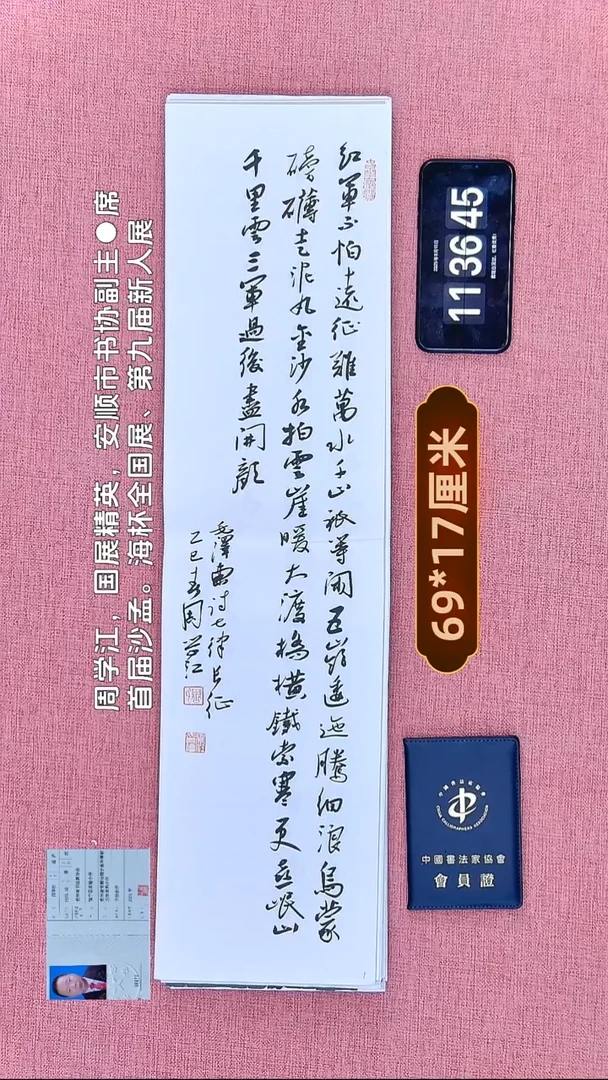 周学江，国展精英，安顺市书协副主●席
首届沙孟。海杯全国展、第九届新人展
紅軍不怕遠征難萬水千山祇等閒五嶺逶迤騰細浪烏蒙
磅礴走泥丸金沙水拍雲崖暖大渡橋橫鐵索寒更喜岷山
千里雪三軍過後盡開顏
毛澤東詩七律長征
乙巳春周學江
11 36 45
69*17厘米
中國書法家協會
CHINA CALLIGRAPHERS ASSOCIATION
中國書法家協會
會員證